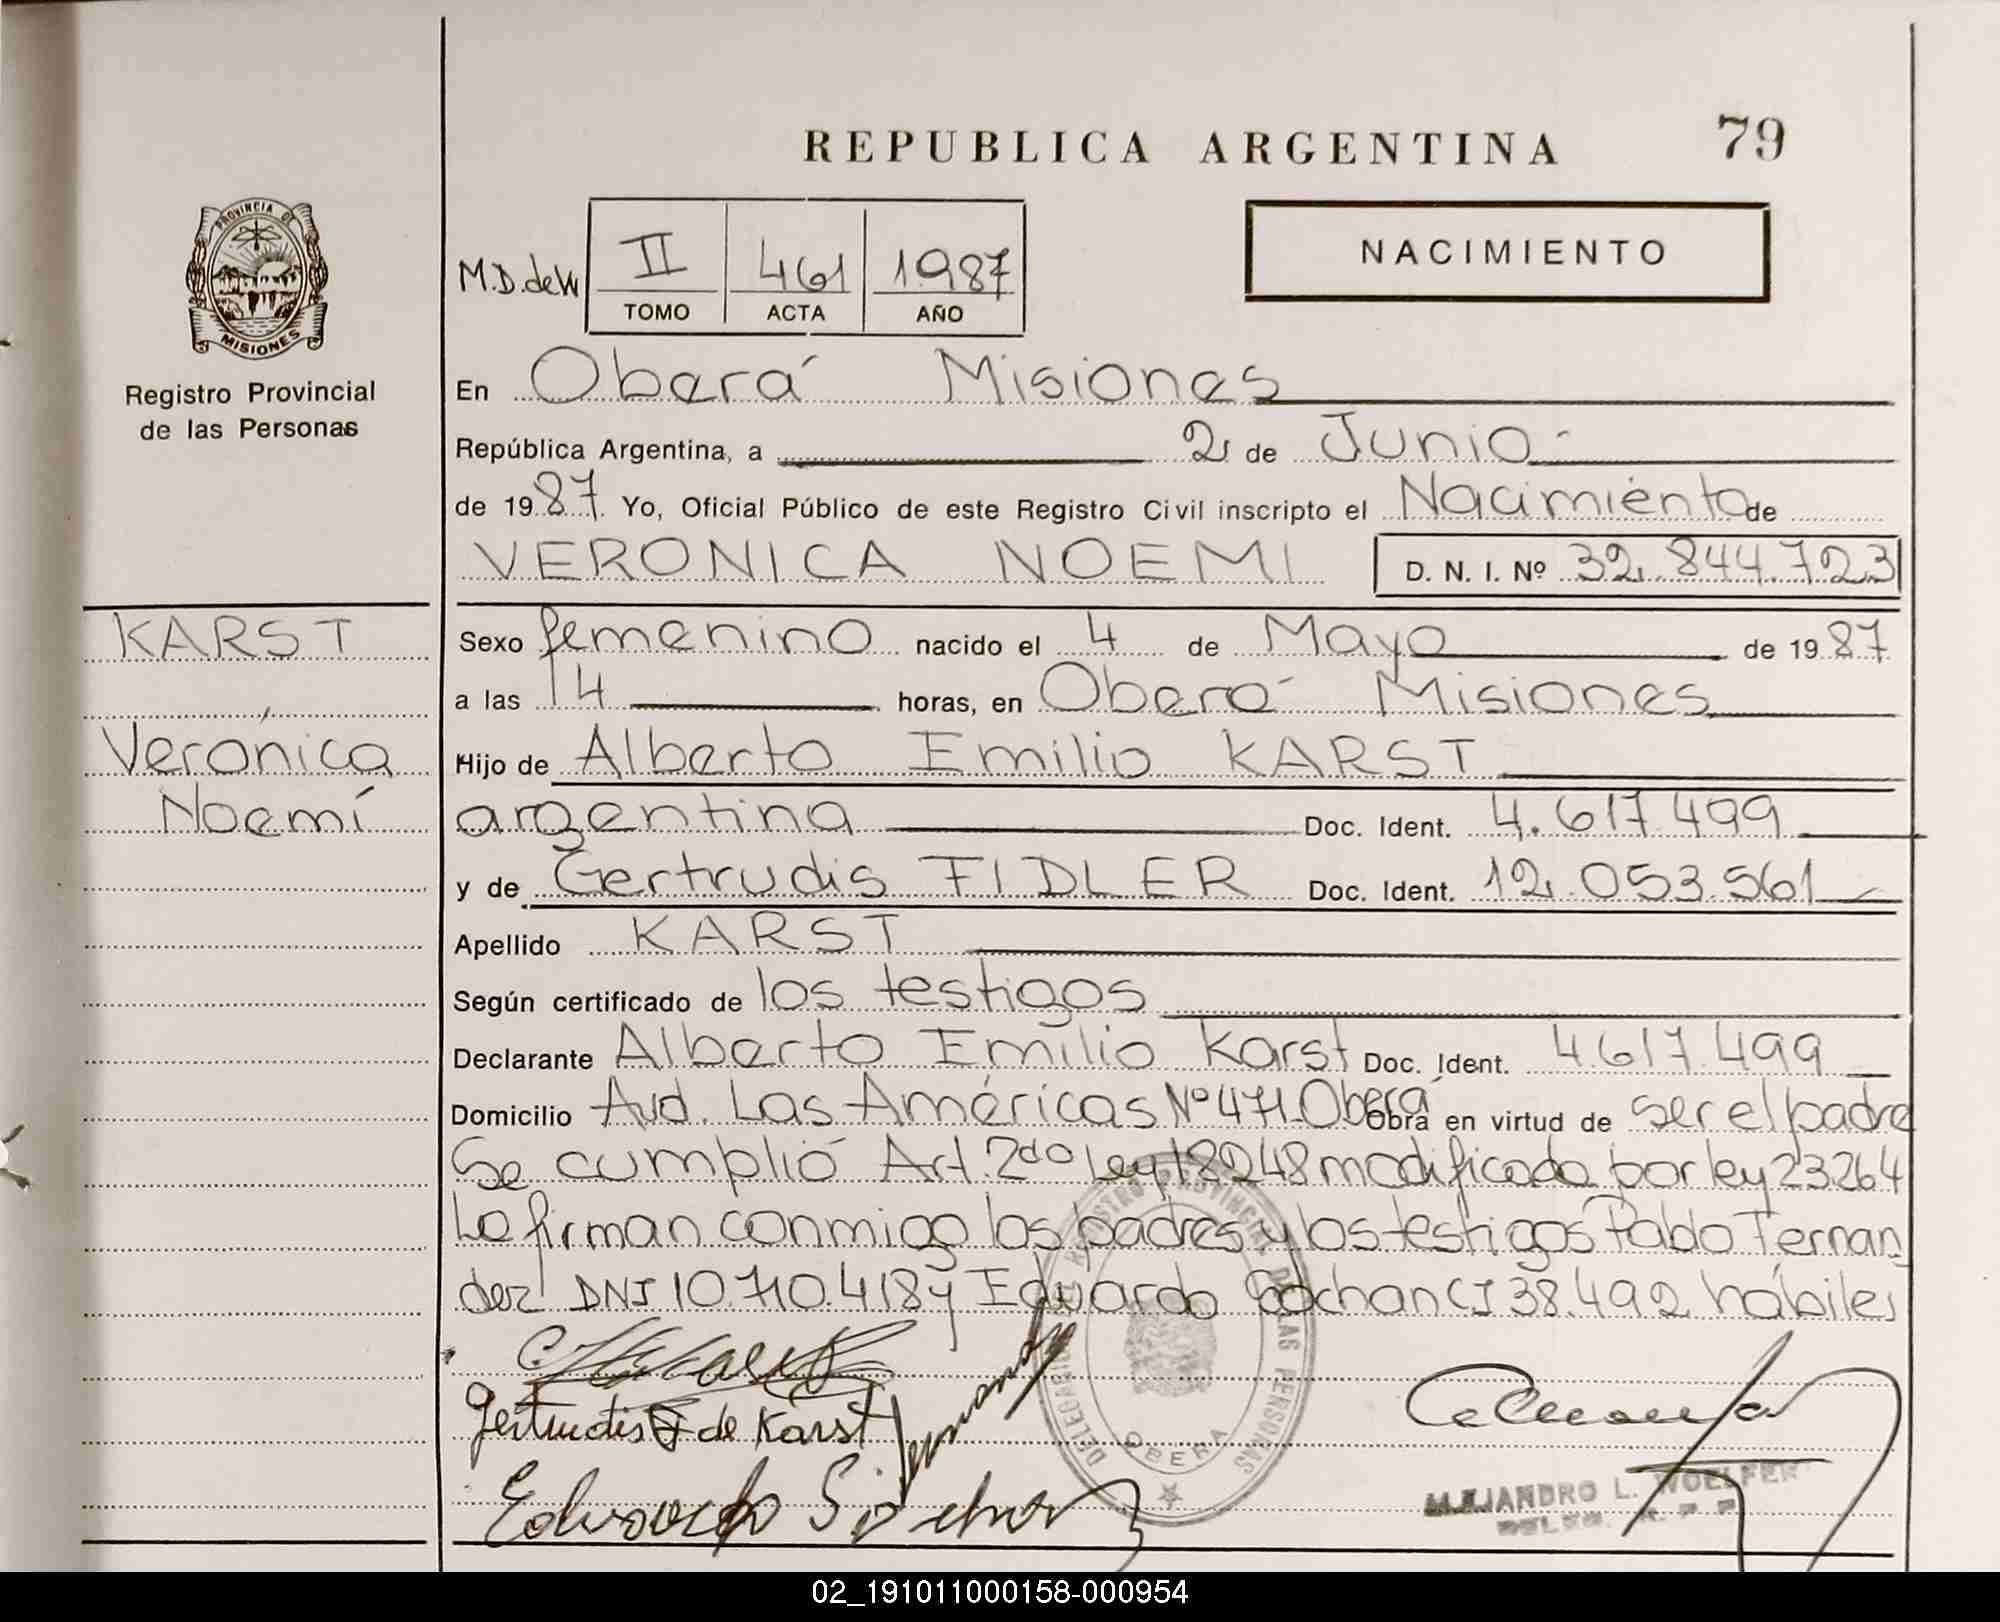 REPUBLICA ARGENTINA
79
PROVINCIA DE
MISIONES
Registro Provincial
de las Personas
NACIMIENTO
M.D.deW
II 461 1987
TOMO ACTA AÑO
En Oberá Misiones
República Argentina, a 2 de Junio
de 1987. Yo, Oficial Público de este Registro Civil inscripto el Nacimiento de
VERONICA NOEMI D. N. I. Nº 32.844.723
KARST
Verónica
Noemí
Sexo femenino nacido el 4 de Mayo de 1987
a las 14 horas, en Oberá Misiones
Hijo de Alberto Emilio KARST
argentina Doc. Ident. 4.617.499
y de Gertrudis FIDLER Doc. Ident. 12.053.561
Apellido KARST
Según certificado de los testigos
Declarante Alberto Emilio Karst Doc. Ident. 4.617.499
Domicilio Avd. Las Américas Nº 471-Oberá Obra en virtud de ser el padre
Se cumplió Art. 2do Ley 18248 modificada por ley 23.264
Lo firman conmigo los padres y los testigos Pablo Fernan
dez DNI 10.710.418 y Eduardo CI 38.492 hábiles
Gertrudis F de Karst
Fernandez
Eduardo
DELEGACION DEL REGISTRO PROVINCIAL DE LAS PERSONAS
OBERA
ALEJANDRO L. WOELFERT
02_191011000158-000954